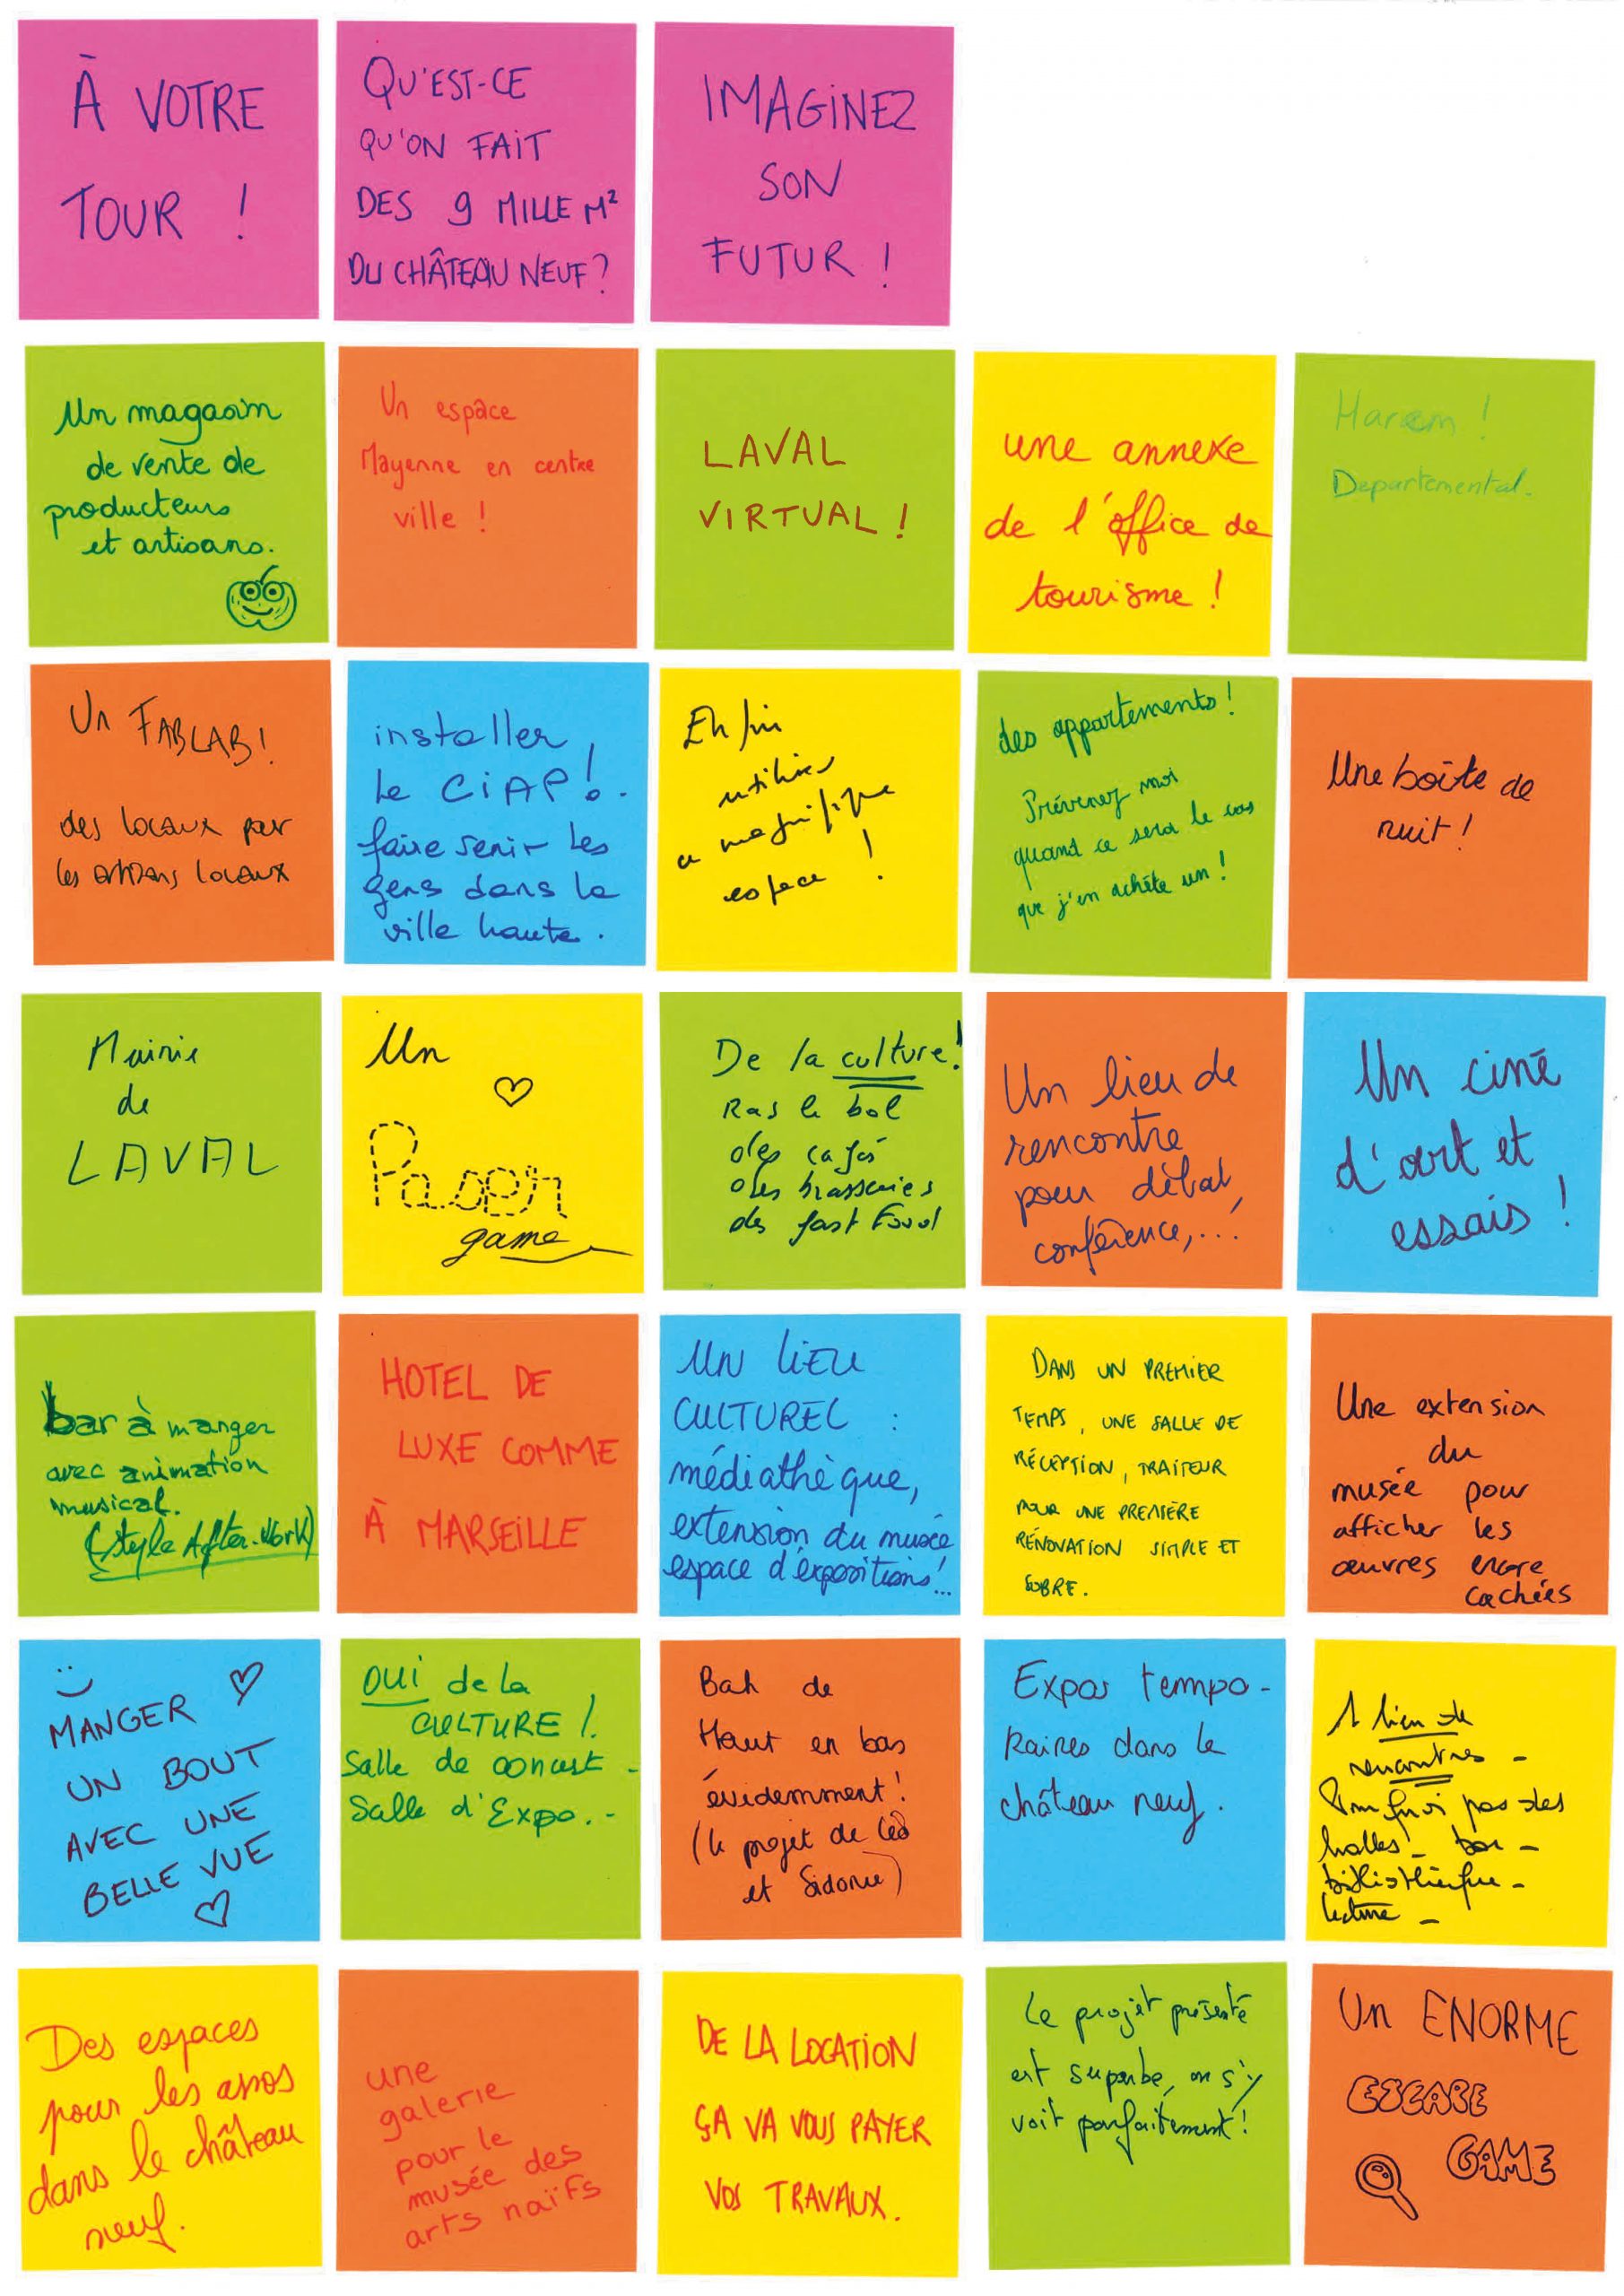 À VOTRE
TOUR !
QU'EST-CE
QU'ON FAIT
DES 9 MILLE M²
DU CHÂTEAU NEUF ?
IMAGINEZ
SON
FUTUR !
Un magasin
de vente de
producteurs
et artisans.
Un espace
Mayenne en centre
ville !
LAVAL
VIRTUAL !
une annexe
de l'office de
tourisme !
Harem !
Departemental.
Un FABLAB !
des locaux par
les artisans locaux
installer
le CiAP !
faire venir les
gens dans la
ville haute.
Enfin
utiliser
ce magnifique
espace !
des appartements !
Prévenez moi
quand ce sera le cas
que j'en achète un !
Une boîte de
nuit !
Mairie
de
LAVAL
Un
game
De la culture !
Ras le bol
des cafés
des brasseries
des fast Food
Un lieu de
rencontre
pour débat,
conférence, ... !
Un ciné
d'art et
essais !
bar à manger
avec animation
musical.
(style After-Work)
HOTEL DE
LUXE COMME
À MARSEILLE
UN LIEU
CULTUREL :
médiathèque,
extension du musée
espace d'expositions !...
DANS UN PREMIER
TEMPS, UNE SALLE DE
RÉCEPTION, TRAITEUR
POUR UNE PREMIÈRE
RÉNOVATION SIMPLE ET
SOBRE.
Une extension
du
musée pour
afficher les
œuvres encore
cachées
MANGER
UN BOUT
AVEC UNE
BELLE VUE
OUI de la
CULTURE !
Salle de concert -
Salle d'Expo. -
Bah de
Haut en bas
évidemment !
(le projet de Léo
et Sidonie)
Expos tempo-
raires dans le
château neuf.
1 lieu de
rencontres -
Pourquoi pas des
halles - bar -
bibliothèque -
lecture -
Des espaces
pour les assos
dans le château
neuf.
une
galerie
pour le
musée des
arts naïfs
DE LA LOCATION
ÇA VA VOUS PAYER
VOS TRAVAUX.
Le projet présenté
est superbe, on s'y
voit parfaitement !
Un ENORME
ESCAPE
GAME